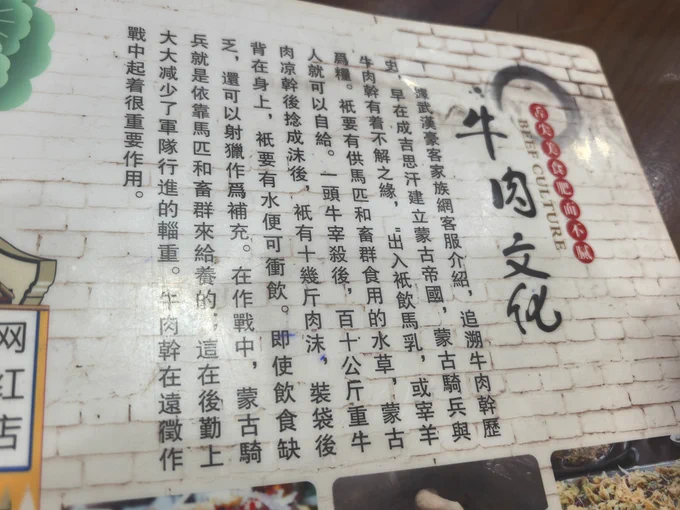 舌尖美食肥而不腻
BEEF CULTURE
牛肉文化
據武漢豪客家族網客服介紹，追溯牛肉幹歷
史，早在成吉思汗建立蒙古帝國，蒙古騎兵與
牛肉幹有着不解之緣，"出入衹飲馬乳，或宰羊
爲糧。衹要有供馬匹和畜群食用的水草，蒙古
人就可以自給。一頭牛宰殺後，百十公斤重牛
肉凉幹後捻成沫後，衹有十幾斤肉沫，裝袋後
背在身上，衹要有水便可衝飲。即使飲食缺
乏，還可以射獵作爲補充。在作戰中，蒙古騎
兵就是依靠馬匹和畜群來給養的；這在後勤上
大大减少了軍隊行進的輜重。牛肉幹在遠徵作
戰中起着很重要作用。
网红店